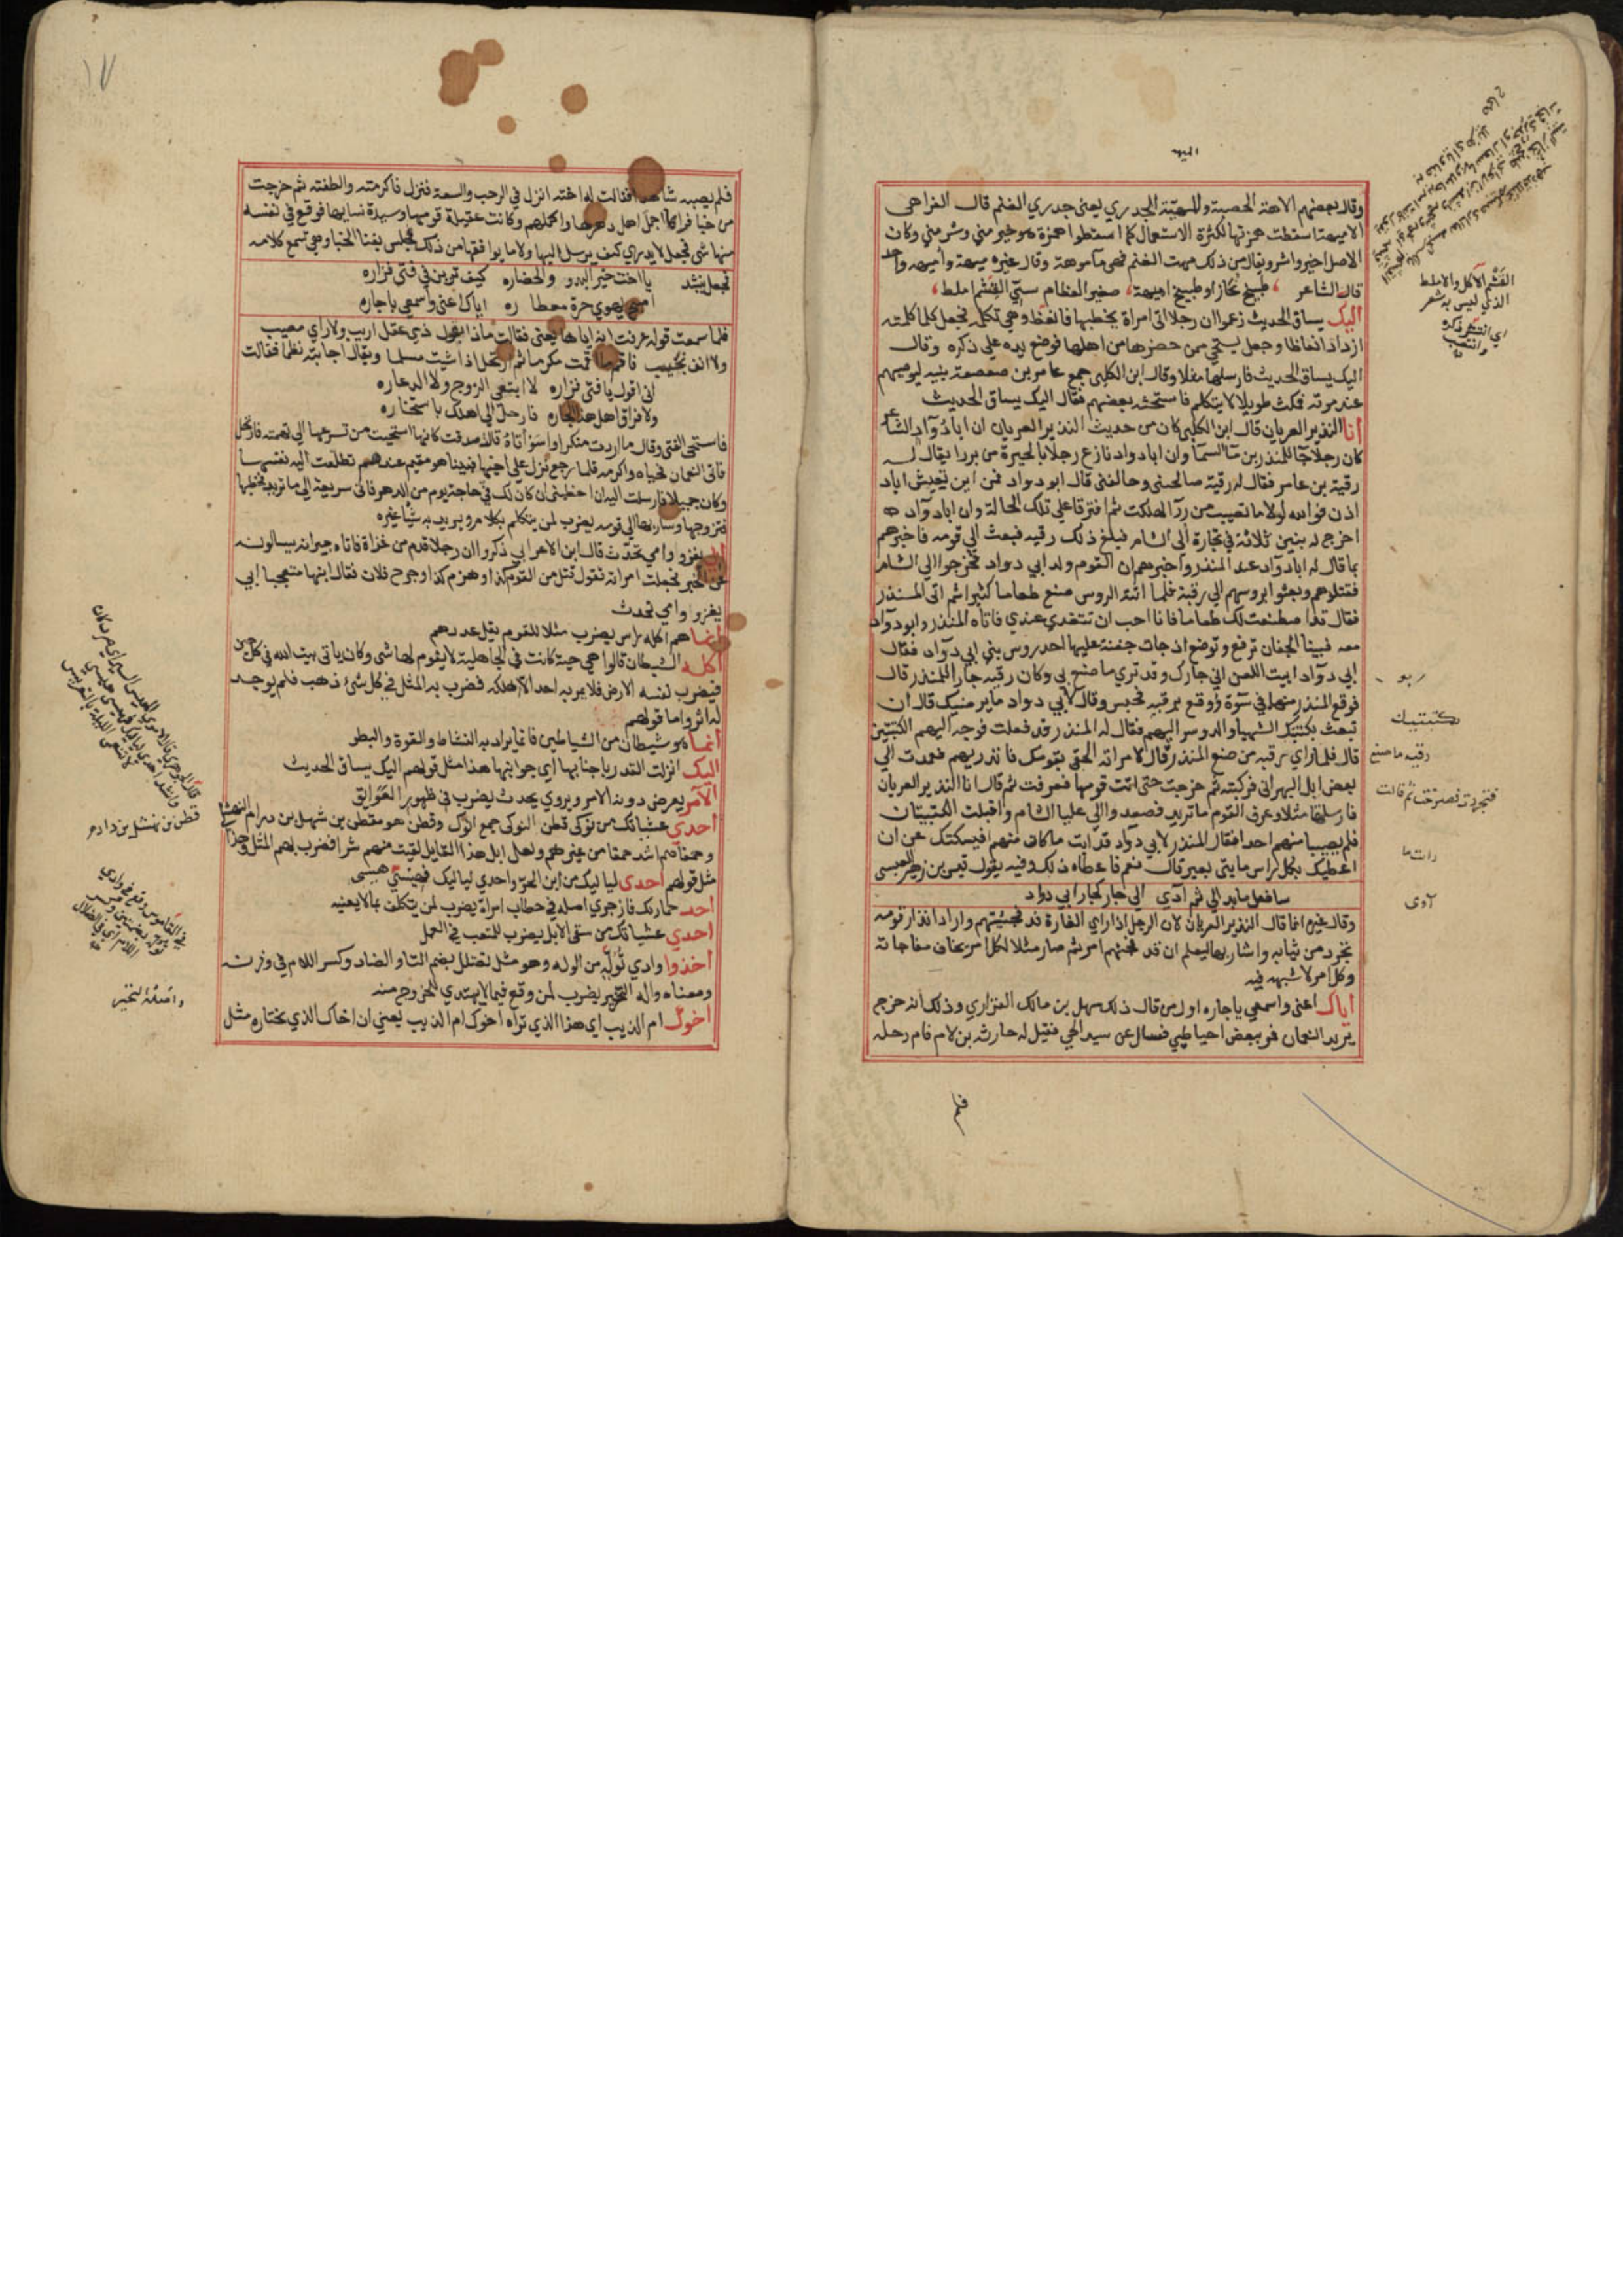 الميهه
وقال بعضهم الامهة الحصبة والمهيّة الجدري يعني جدري الغنم قال الفراهي
الاميهة اسقطت همزتها لكثرة الاستعمال كما اسقطوا همزة هو خير مني وشر مني وكان
الاصل اخير واشر ويقال من ذلك ميهت الغنم فهي مأموهة وقال غيره ميهة واميهه واحد
قال الشاعر طبيخ نحاز او طبيخ اميهة صغير العظام سيّي القشم املط
اليك يساق الحديث زعموا ان رجلا اتى امراة يخطبها فانعظ وهي تكلمه فجعل كلما كلمته
ازداد انعاظا وجعل يستحي ممن حضرها من اهلها فوضع يده على ذكره وقال
اليك يساق الحديث فارسلها مثلا وقال ابن الكلبي جمع عامر بن صعصعة بنيه ليوصيهم
عند موته فمكث طويلا لا يتكلم فاستحثه بعضهم فقال اليك يساق الحديث
أنا النذير العريان قال ابن الكلبي كان من حديث النذير العريان ان ابا دُوَاد الشاعر
كان رجلا جارًا للمنذر بن ماالسمآ وان ابا دواد نازع رجلا بالحيرة من بهرا يقال له
رقبة بن عامر فقال له رقبة صالحني وحالفني قال ابو دواد فمن اين تعيش ابا دواد
اذن فوالله لولا ما تصيب من بهرآ لهلكت ثم افترقا على تلك الحالة وان ابا دوآد
اخرج له بنين ثلاثة في تجارة الى الشام فبلغ ذلك رقبه فبعث الى قومه فاخبرهم
بما قال له ابا دوآد عند المنذر واخبرهم ان القوم ولد ابي دواد فخرجوا الى الشام
فقتلوهم وبعثوا بروسهم الى رقبة فلما اتته الروس صنع طعاما كثيرا ثم اتى المنذر
فقال قد اصطنعت لك طعاما فانا احب ان تتغدي عندي فاتاه المنذر وابو دوآد
معه فبينا الجفان ترفع وتوضع اذ جات جفنة عليها احد روس بني ابي دوآد فقال
ابي دوآد ابيت اللعن اني جارك وقد تري ما صنع بي وكان رقبه جارا للمنذر قال
فوقع المنذر منهما في سوّة وامر برقبه فحبس وقال لابي دواد ما يرضيك قال ان
تبعث بكتيبتيك الشهبا والدوسر اليهم فقال له المنذر قد فعلت فوجه اليهم الكتيبتين
قال فلما راي رقبه من صنع المنذر قال لامراته الحقي بقومك فانذريهم فعمدت الى
بعض ابل البهراني فركبته ثم خرجت حتى اتت قومها فعرفت ثم قال انا النذير العريان
فارسلتها مثلا وعرف القوم ما تريد فصعدوا الى عليا الشام واقبلت الكتيبتان
فلم يصيبا منهم احدا فقال المنذر لابي دوآد قد رايت ما كان منهم افيسكتك عني ان
اعطيك بكل راس مايتي بعير قال نعم فاعطاه ذلك وفيه يقول قيس بن زهير العبسى
سافعل ما بدا لي ثم آوي الى جار كجار ابي دواد
وقال غيره انما قال النذير العريان لان الرجل اذا راي الغارة قد فجئتهم واراد انذار قومه
تجرد من ثيابه واشار بها ليعلم ان قد فجئهم امر ثم صار مثلا لكل امر يخاف مفاجاته
وكل امر لا شبهه فيه
اياك اعني واسمعي ياجاره اول من قال ذلك سهل بن مالك الفزاري وذلك انه خرج
يريد النعمان فمر ببعض احيا طيي فسال عن سيد الحي فقيل له حارثه بن لام فام رحله
فلم
القَشْم الاكل والاملط
الذي ليس به شعر
اي انتشر ذكره
وانتصب
بكتيبتيك
رقبه ما صنع
فتجردت فصرخت ثم قالت
رات ما
آوى
١٧
فلم يصبه شاهدا فقالت له اخته انزل في الرحب والسعة فنزل فاكرمته والطفته ثم خرجت
من خبا فراي اجمل اهل دهرها واكملهم وكانت عقيلة قومها وسيدة نسايها فوقع في نفسه
منها شى فجعل لا يدري كيف يرسل اليها ولا ما يوافقها من ذلك فجلس بفنا الخبا وهي تسمع كلامه
فجعل ينشد يا اخت خير البدو والحضاره كيف ترين في فتى فزاره
اصبح يهوي حرة معطاره اياك اعني واسمعي ياجاره
فلما سمعت قوله عرفت انه اياها يعني فقالت ماذا بقول ذي عقل اريب ولا راي مصيب
ولا انف نجيب فاقم ما اقمت مكرما ثم ارتحل اذا شيت مسلما ويقال اجابته نظما فقالت
اني اقول يا فتى فزاره لا ابتغي الزوج ولا الدعاره
ولا فراق اهل هذا الجاره فارحل الى اهلك باستخاره
فاستحى الفتى وقال ما اردت منكرا واسَوْأتاهُ قالت صدقت كانها استحيت من تسرعها الى تهمته فارتحل
فاتى النعمان فحباه واكرمه فلما رجع نزل على اخيها فبينا هو مقيم عندهم تطلعت اليه نفسها
وكان جميلا فارسلت اليه ان اخطبني ان كان لك في حاجة يوم من الدهر فاني سريعة الى ما تريد فخطبها
فتزوجها وسار بها الى قومه يضرب لمن يتكلم بكلام ويريد به شيا غيره
ابي يغزو وامي تحدّث قال ابن الاعرابي ذكروا ان رجلا قدم من غزاة فاتاه جيرانه يسالونه
عن الخبر فجعلت امراته تقول قتل من القوم كذا وهزم كذا وجرح فلان فقال ابنها متعجبا ابي
يغزوا وامي تحدث
انما هم اكله راس يضرب مثلا للقوم يقل عددهم
اكله الشيطان قالوا هي حية كانت في الجاهلية لا يقوم لها شى وكان ياتي بيت الله في كل حين
فيضرب لنفسه الارض فلا يمر به احد الا اهلكه فضرب به المثل في كل شئ ذهب فلم يوجد
له اثر واما قولهم
انما هو شيطان من الشياطين فانما يراد به النشاط والقوة والبطر
اليك انزلت القدر باجنابها اي جوانبها هذا مثل قولهم اليك يساق الحديث
الامر يعرض دونه الامر ويروي يحدث يضرب في ظهور العَوَايق
احدي عشياتك من نوكى قطن النوكى جمع انوك وقطن هو قطن بن شهل بن دارم النهشلى
وحمقاهم اشد حمقا من غيرهم ولعل ابل هذا القايل لقيت منهم شرا فضرب بهم المثل وهذا
مثل قولهم احدى لياليك من ابن الحرّ واحدي لياليك فهيسي هيسى
احد حمارك فازجري اصله في خطاب امراة يضرب لمن يتكلف ما لا يعنيه
احدي عشياتك من سقى الابل يضرب للمتعب في العمل
اخذوا وادي تُوَلِّهَ من الوله وهو مثل تضلل بضم التاو الضاد وكسر اللام في وزنه
ومعناه واله التحير يضرب لمن وقع فيما لا يهتدي للخروج منه
اخوك ام الذيب اي هذا الذي تراه اخوك ام الذيب يعني ان اخاك الذي تختاره مثل
قطن بن نهشل بن دارم
واصله التحير